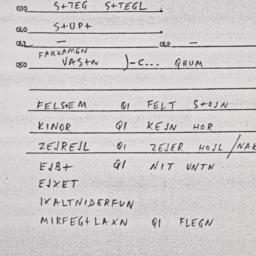 030 S+TEG S+TEGL
040 S+UP+
041 — 042 —
FARHAMEN
050 VAS+N )-C... QHUM
FELSEM QI FELT S+OJN
KINOR QI KEJN HOR
ZEJREJL QI ZEJER HOJL/NAK
EJB+ QI NIT UNTN
EJXET
IXALTNIDERFUN
MIRFEG+LAXN QI FLEGN